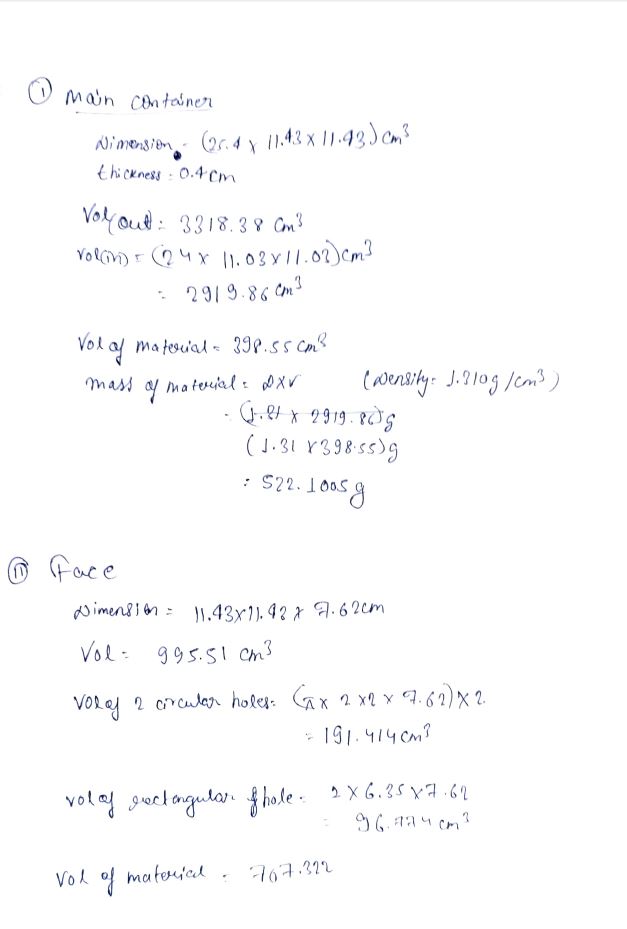 ① Main container
Dimension - (25.4 x 11.43 x 11.43) cm³
thickness : 0.4 cm
Vol(out) = 3318.38 cm³
Vol(in) = (24 x 11.03 x 11.03) cm³
= 2919.86 cm³
Vol of material = 398.55 cm³
mass of material = D x V (Density = 1.310 g/cm³)
= (1.31 x 2919.86) g
(1.31 x 398.55) g
= 522.1005 g
② Face
Dimension = 11.43 x 11.43 x 7.62 cm
Vol = 995.51 cm³
Vol of 2 circular holes = (π x 2 x 2 x 7.62) x 2
= 191.414 cm³
vol of rectangular hole = 2 x 6.35 x 7.62
= 96.774 cm³
Vol of material = 707.322